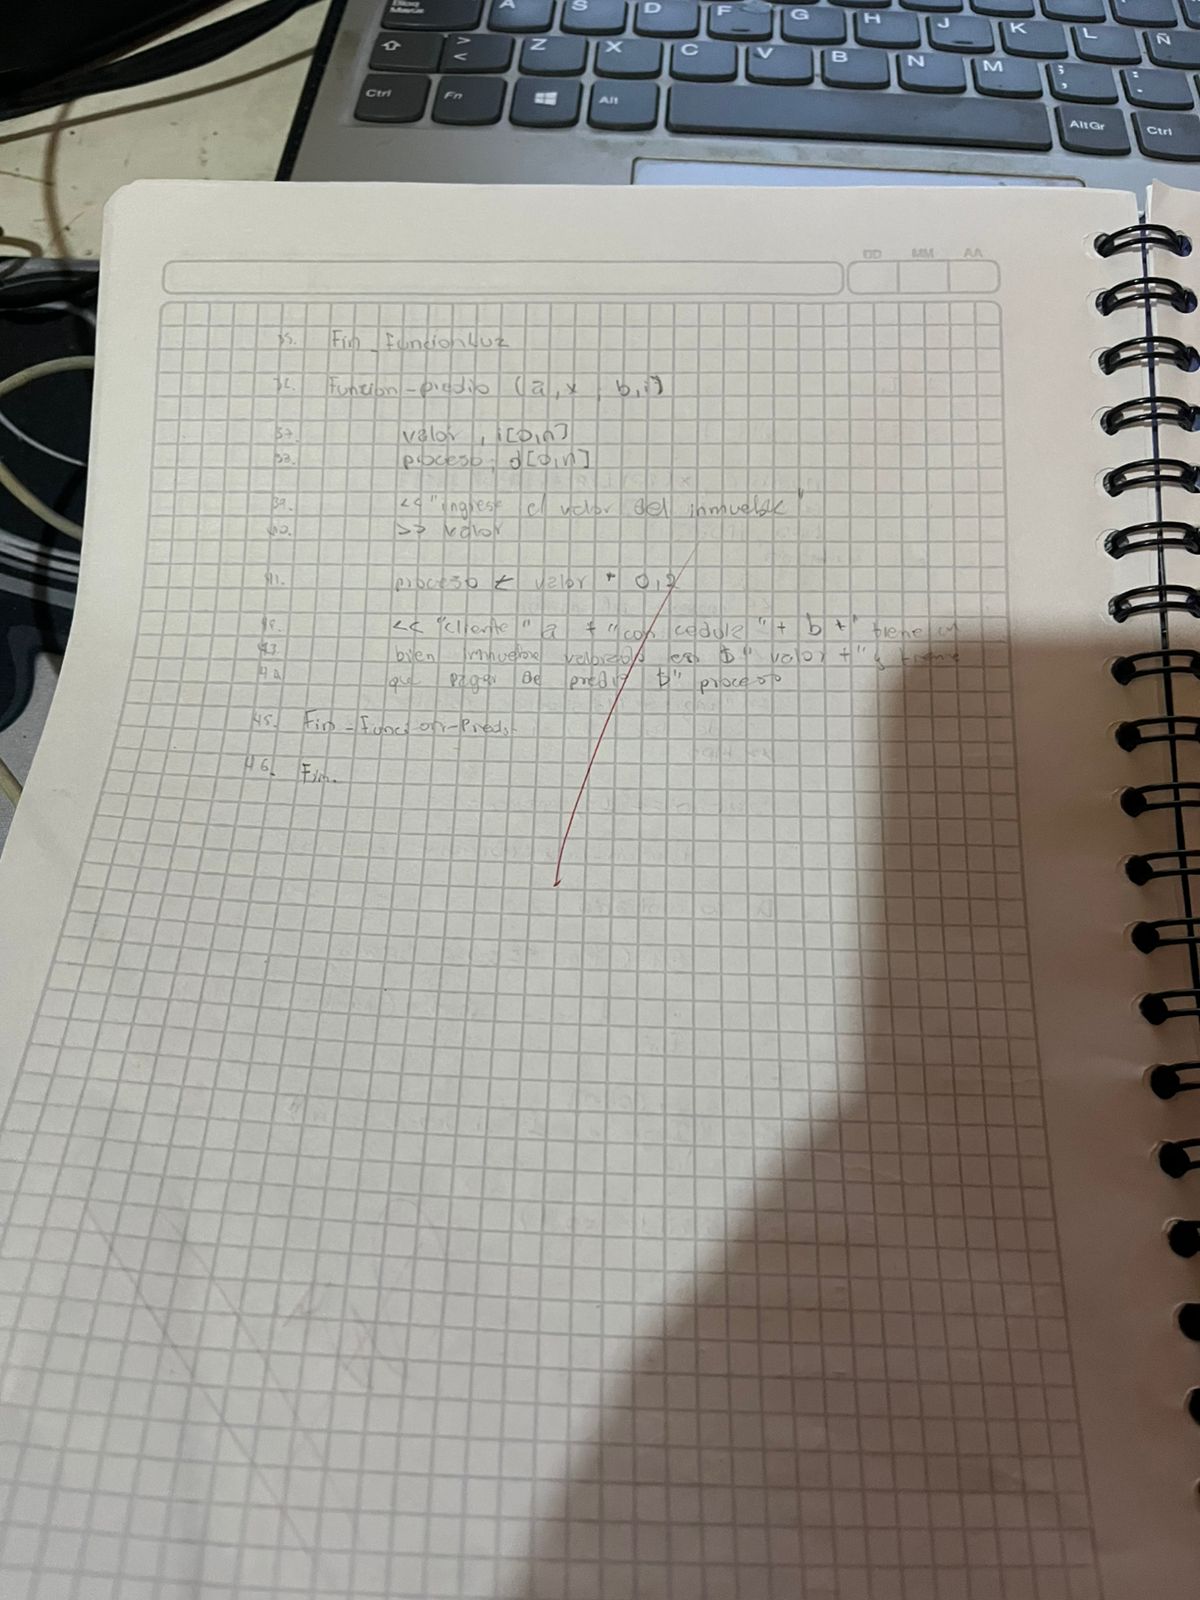 Bloq
Mayús
A S D F G H J K L Ñ
>
<
Z X C V B N M ; :
, .
Ctrl Fn Alt AltGr Ctrl
DD MM AA
35. Fin_funcionLuz
36. Funcion-predio (a,x , b,i)
37. valor, i[0,n]
38. proceso, d[0,n]
39. << "ingrese el valor del inmueble"
40. >> valor
41. proceso ← valor * 0,2
42. << "cliente" a + "con cedula" + b + " tiene un
43. bien inmueble valorado en $" valor + " y tiene
44. que pagar de predio $" proceso
45. Fin-Funcion-Predi
46. Fin.